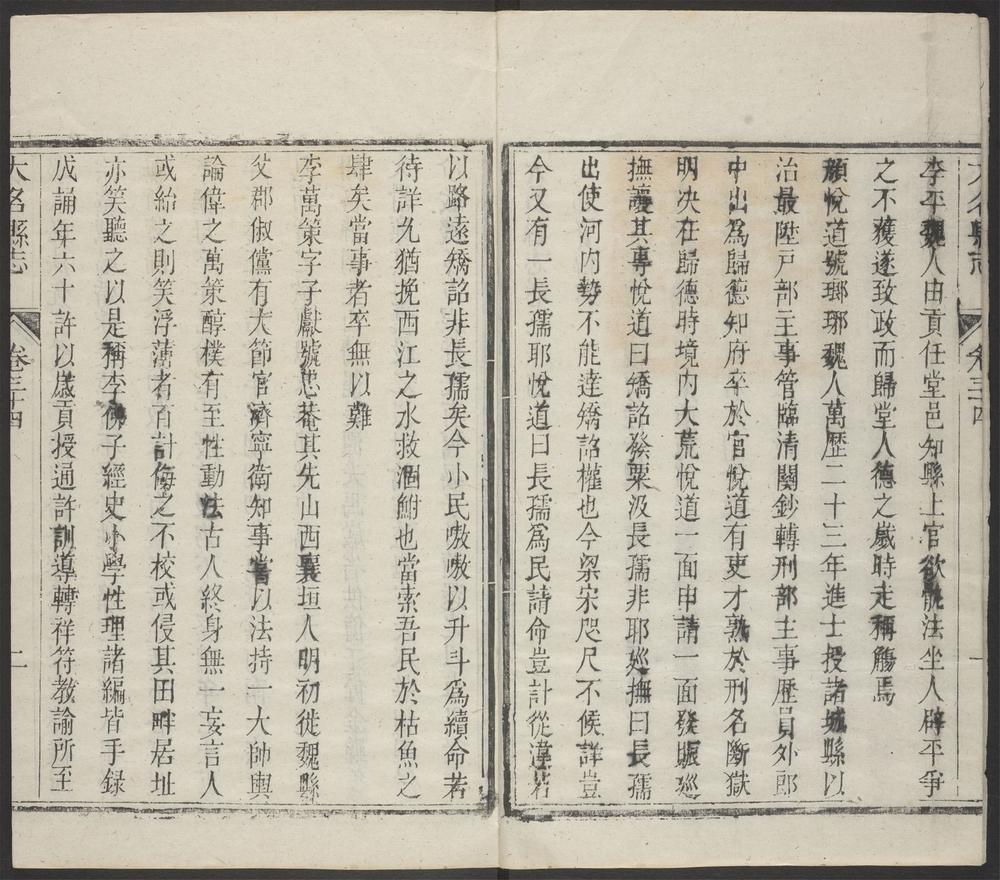 大名縣志
卷三十四
一
李平魏人由貢任堂邑知縣上官欲骫法坐人辟平爭
之不獲遂致政而歸堂人德之歲時走稱觴焉
顏悅道號瑯琊魏人萬歷二十三年進士授諸城縣以
治最陞戸部主事管臨清關鈔轉刑部主事歷員外郎
中出爲歸德知府卒於官悅道有吏才熟於刑名斷獄
明决在歸德時境内大荒悅道一面申請一面發賑廵
撫讓其專悅道曰矯詔發粟汲長孺非耶廵撫曰長孺
出使河内勢不能達矯詔權也今梁宋咫尺不候詳豈
今又有一長孺耶悅道曰長孺爲民請命豈計從違若
以路遠矯詔非長孺矣今小民嗷嗷以升斗爲續命若
待詳允猶挽西江之水救涸鮒也當索吾民於枯魚之
肆矣當事者卒無以難
李萬策字子獻號思菴其先山西襄垣人明初徙魏縣
父郡俶儻有大節官濟寧衛知事嘗以法持一大帥輿
論偉之萬策醇樸有至性動法古人終身無一妄言人
或紿之則笑浮薄者百計侮之不校或侵其田畔居址
亦笑聽之以是稱李佛子經史小學性理諸編皆手錄
成誦年六十許以歲貢授通許訓導轉祥符教諭所至
大名縣志
卷三十四
二